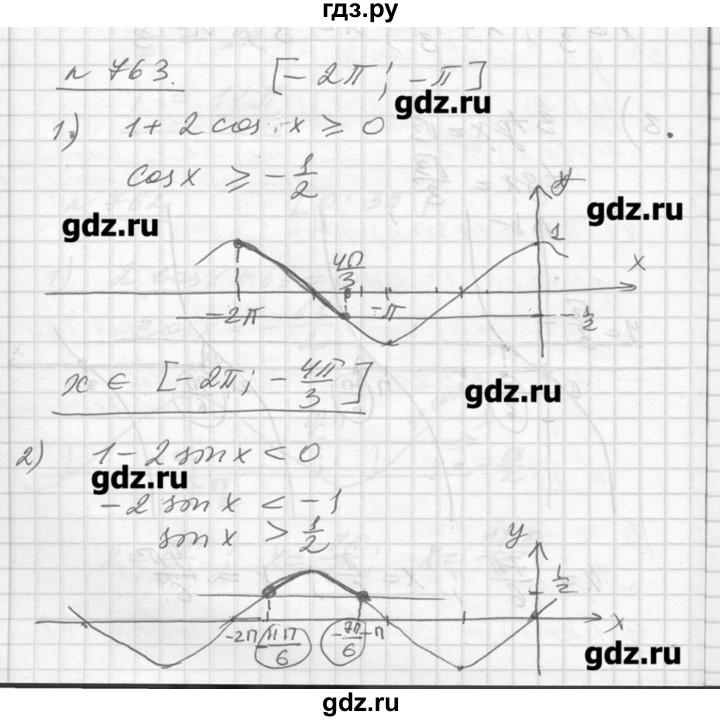 гдз.ру
n 763. [-2π; -π]
gdz.ru
1) 1 + 2 cos x ≥ 0
cos x ≥ -1/2
gdz.ru
gdz.ru
y
1
4π/3
x
-2π
-π
-1/2
x ∈ [-2π; -4π/3]
gdz.ru
2) 1 - 2 sin x < 0
gdz.ru
-2 sin x < -1
sin x > 1/2
y
1/2
-2π -11π/6 -7π/6 -π x
gdz.ru
gdz.ru